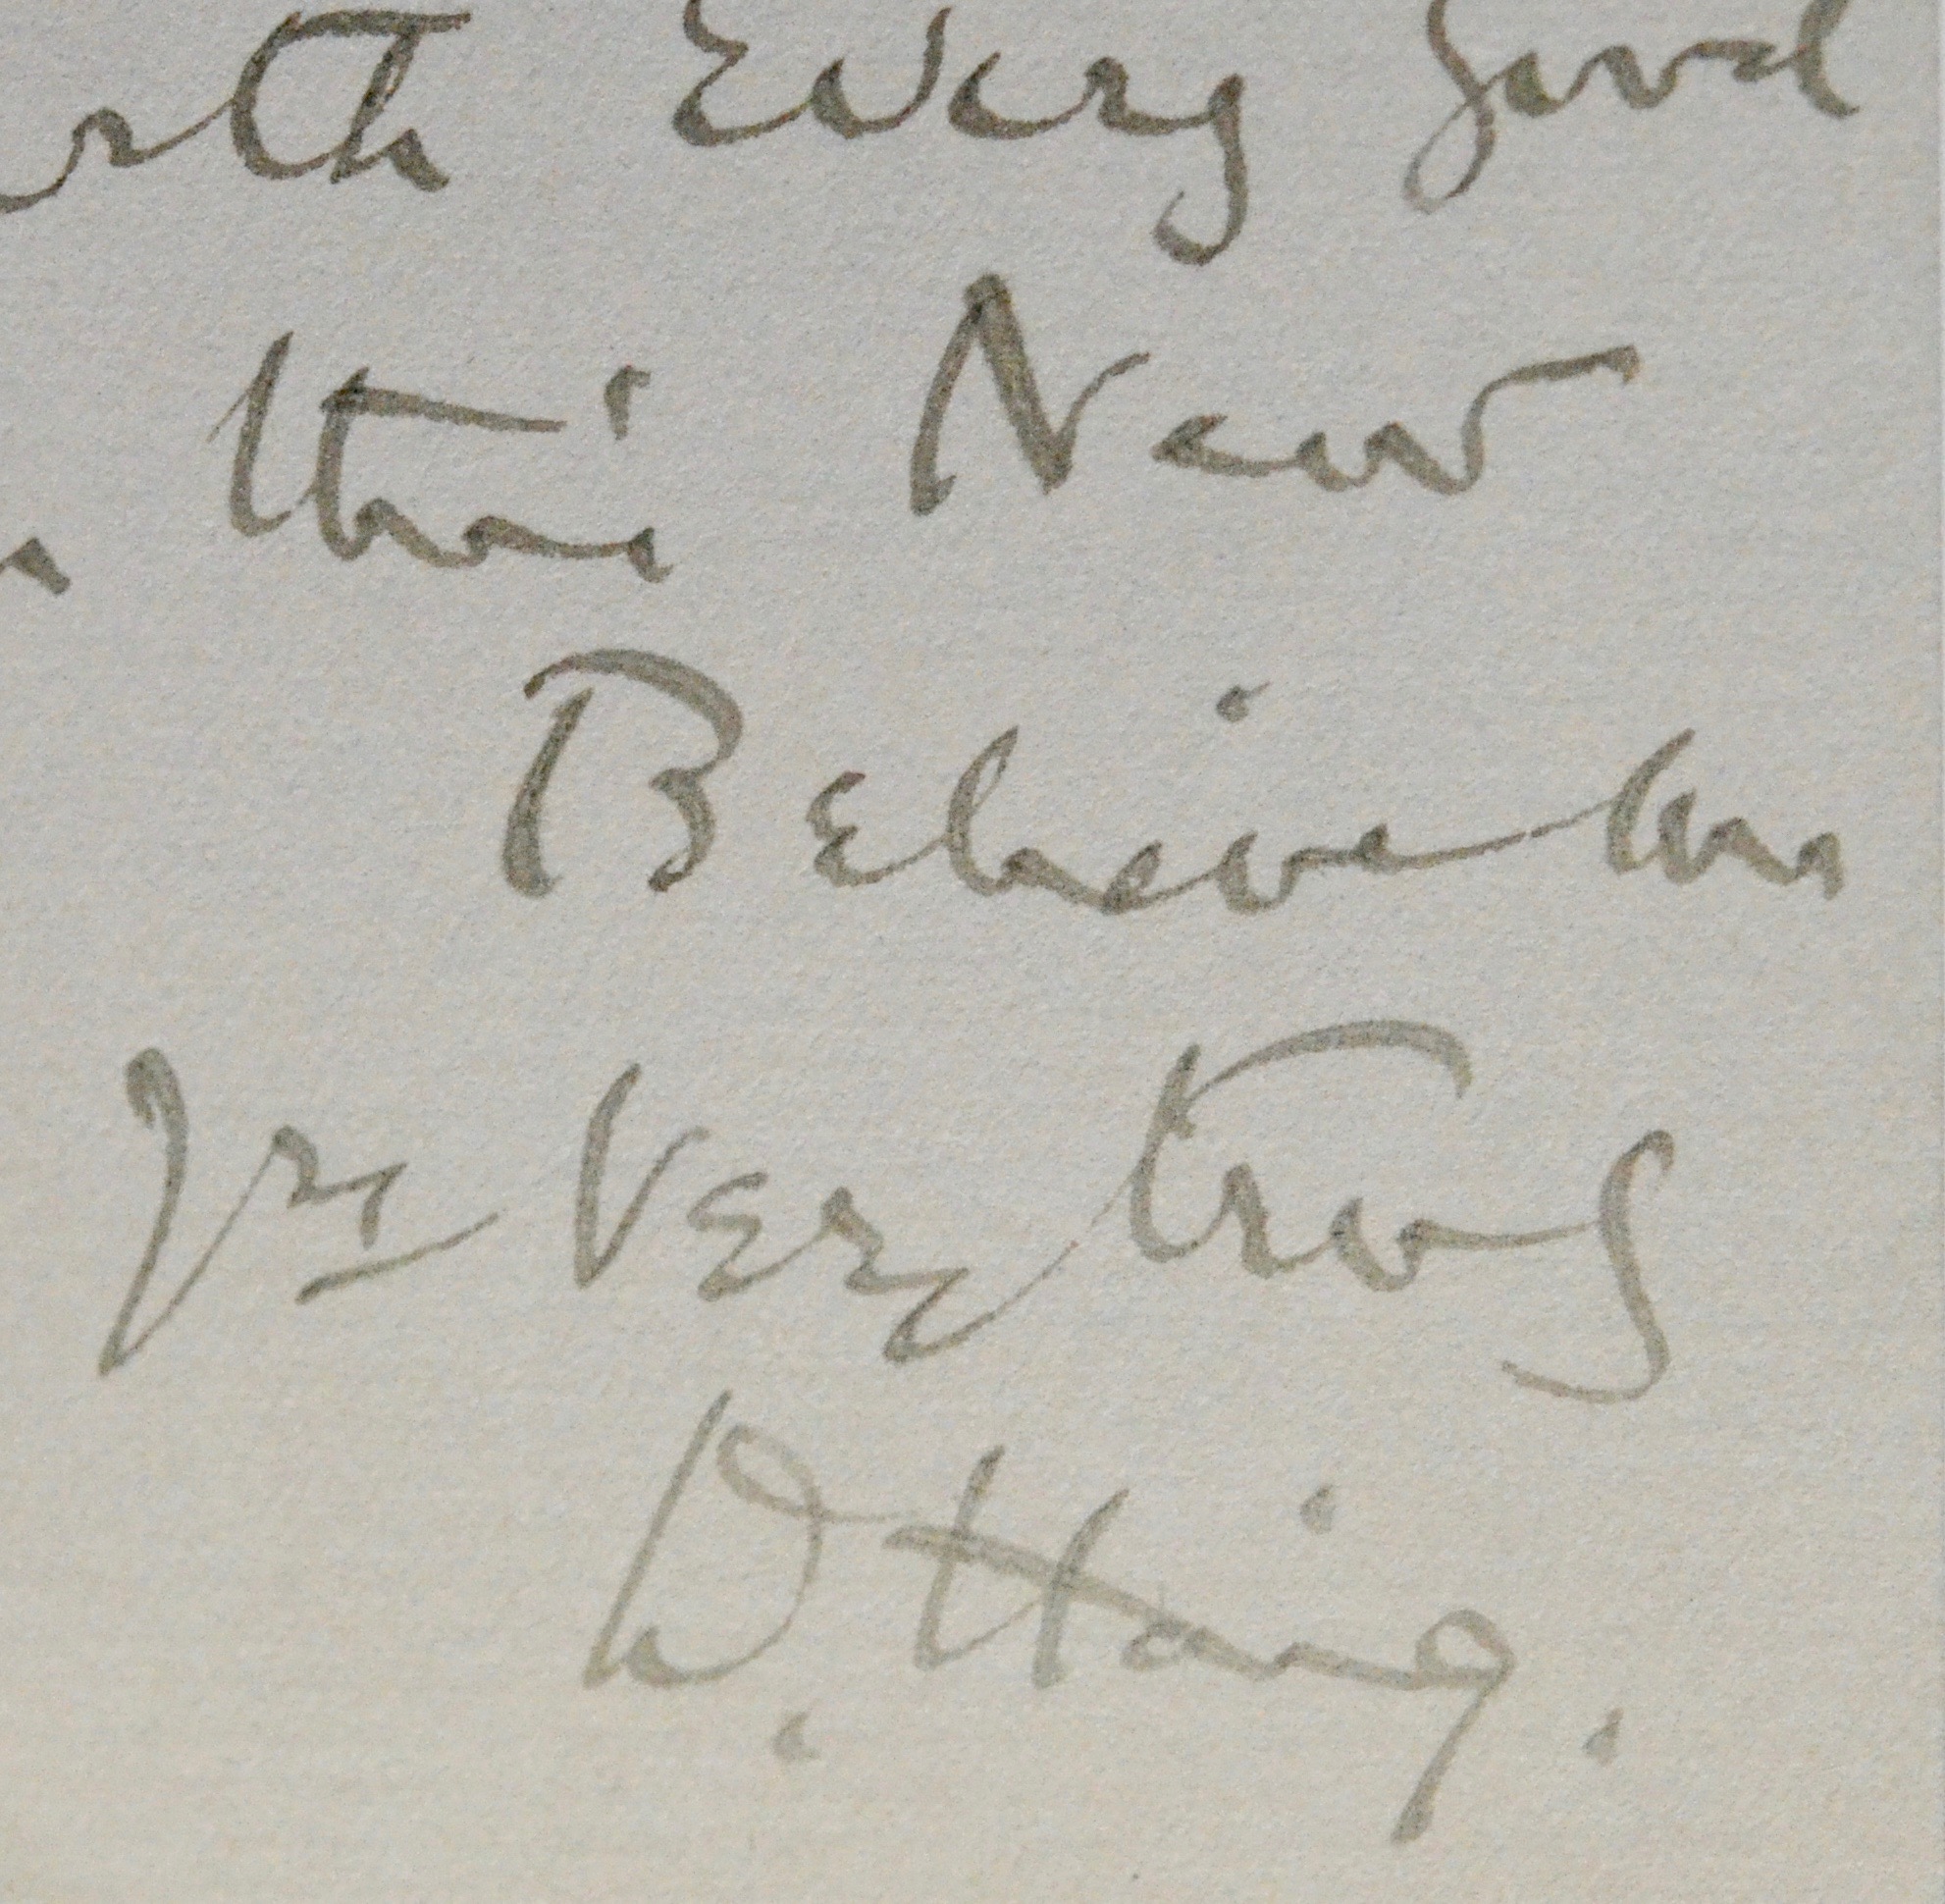 ith Every good
their New
Believe me
Yrs Very truly
D. Haig.